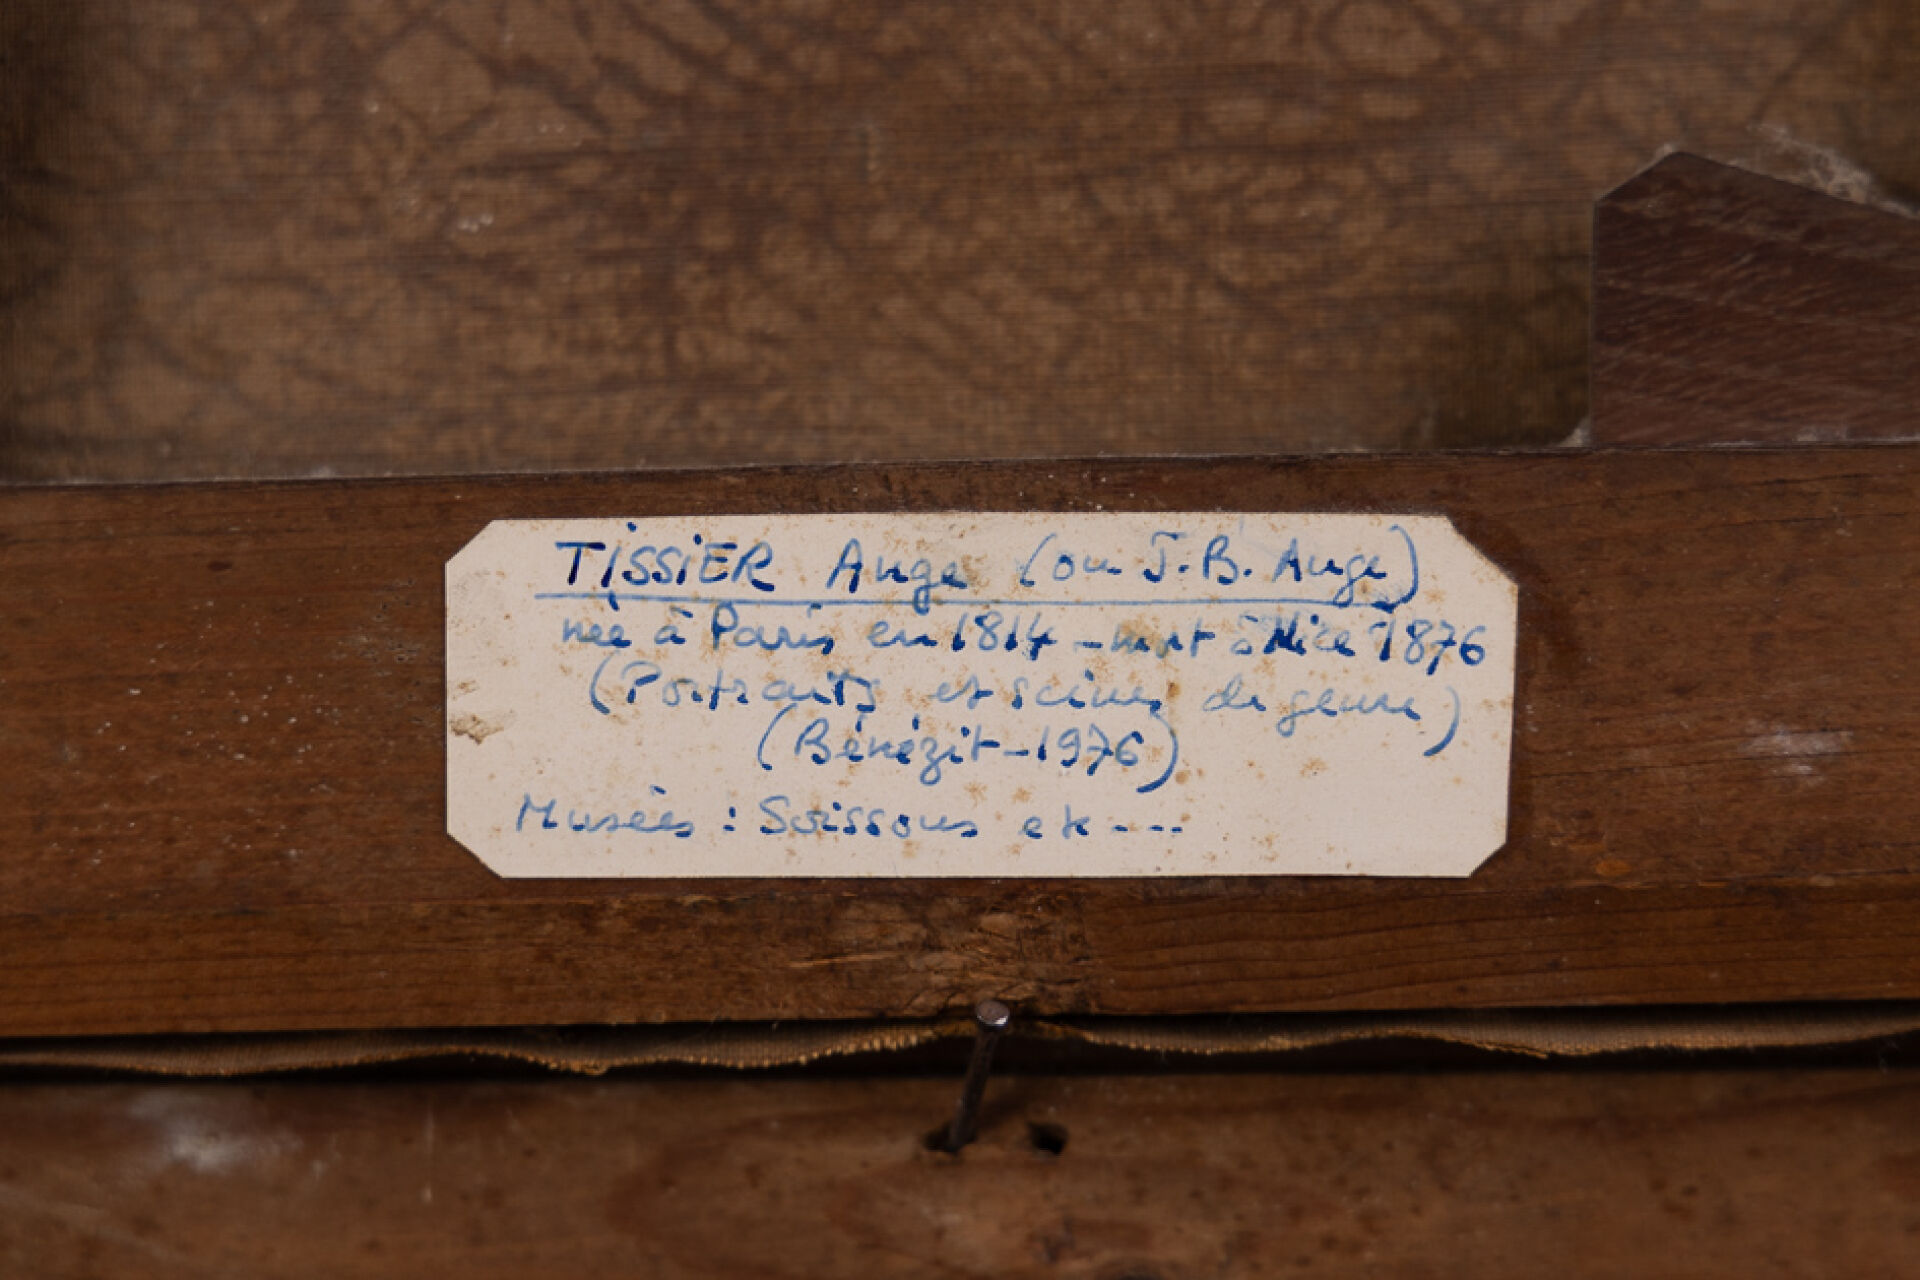 TISSIER Ange (ou J.B. Ange)
née à Paris en 1814 - mort à Nice 1876
(Portraits et scènes de genre)
(Bénézit - 1976)
Musées : Soissons etc ---